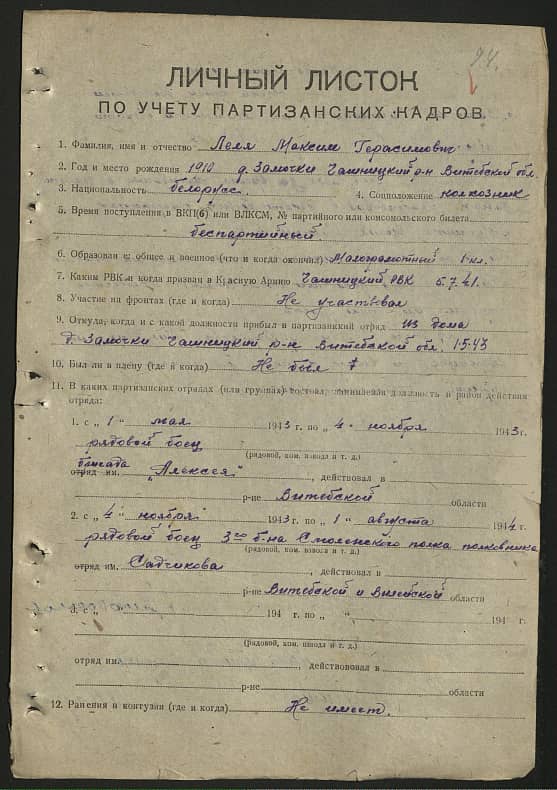 94.
ЛИЧНЫЙ ЛИСТОК
ПО УЧЕТУ ПАРТИЗАНСКИХ КАДРОВ
1. Фамилия, имя и отчество Леля Максим Герасимович
2. Год и место рождения 1919 д. Замочки Чашницкий р-н Витебской обл.
3. Национальность белорусс. 4. Соцположение колхозник
5. Время поступления в ВКП(б) или ВЛКСМ, № партийного или комсомольского билета
беспартийный.
6. Образован е общее и военное (что и когда окончил) Малограмотный 1 кл.
7. Каким РВК и когда призван в Красную Армию Чашницкий РВК 5.7.41.
8. Участие на фронтах (где и когда) Не участвовал
9. Откуда, когда и с какой должности прибыл в партизанский отряд из дома
д. Замочки Чашницкий р-н Витебской обл. 1.5.43
10. Был ли в плену (где и когда) Не был
11. В каких партизанских отрядах (или группах) состоял, занимаемая должность и район действия
отряда:
1. с „1" мая 1943 г. по „4" ноября 1943 г.
рядовой боец
(рядовой, ком. взвода и т. д.)
бригада
отряд им. „Алексея", действовал в
р-не Витебской области
2. с „4" ноября 1943 г. по „1" августа 1944 г.
рядовой боец 3го б-на Смоленского полка полковника
(рядовой, ком. взвода и т. д.)
отряд им. Садчикова, действовал в
р-не Витебской и Вилейской области
3. с „ " 194 г. по „ " 194 г.
(рядовой, ком. взвода и т. д.)
отряд им., действововал в
р-не области
12. Ранения и контузии (где и когда) Не имеет.